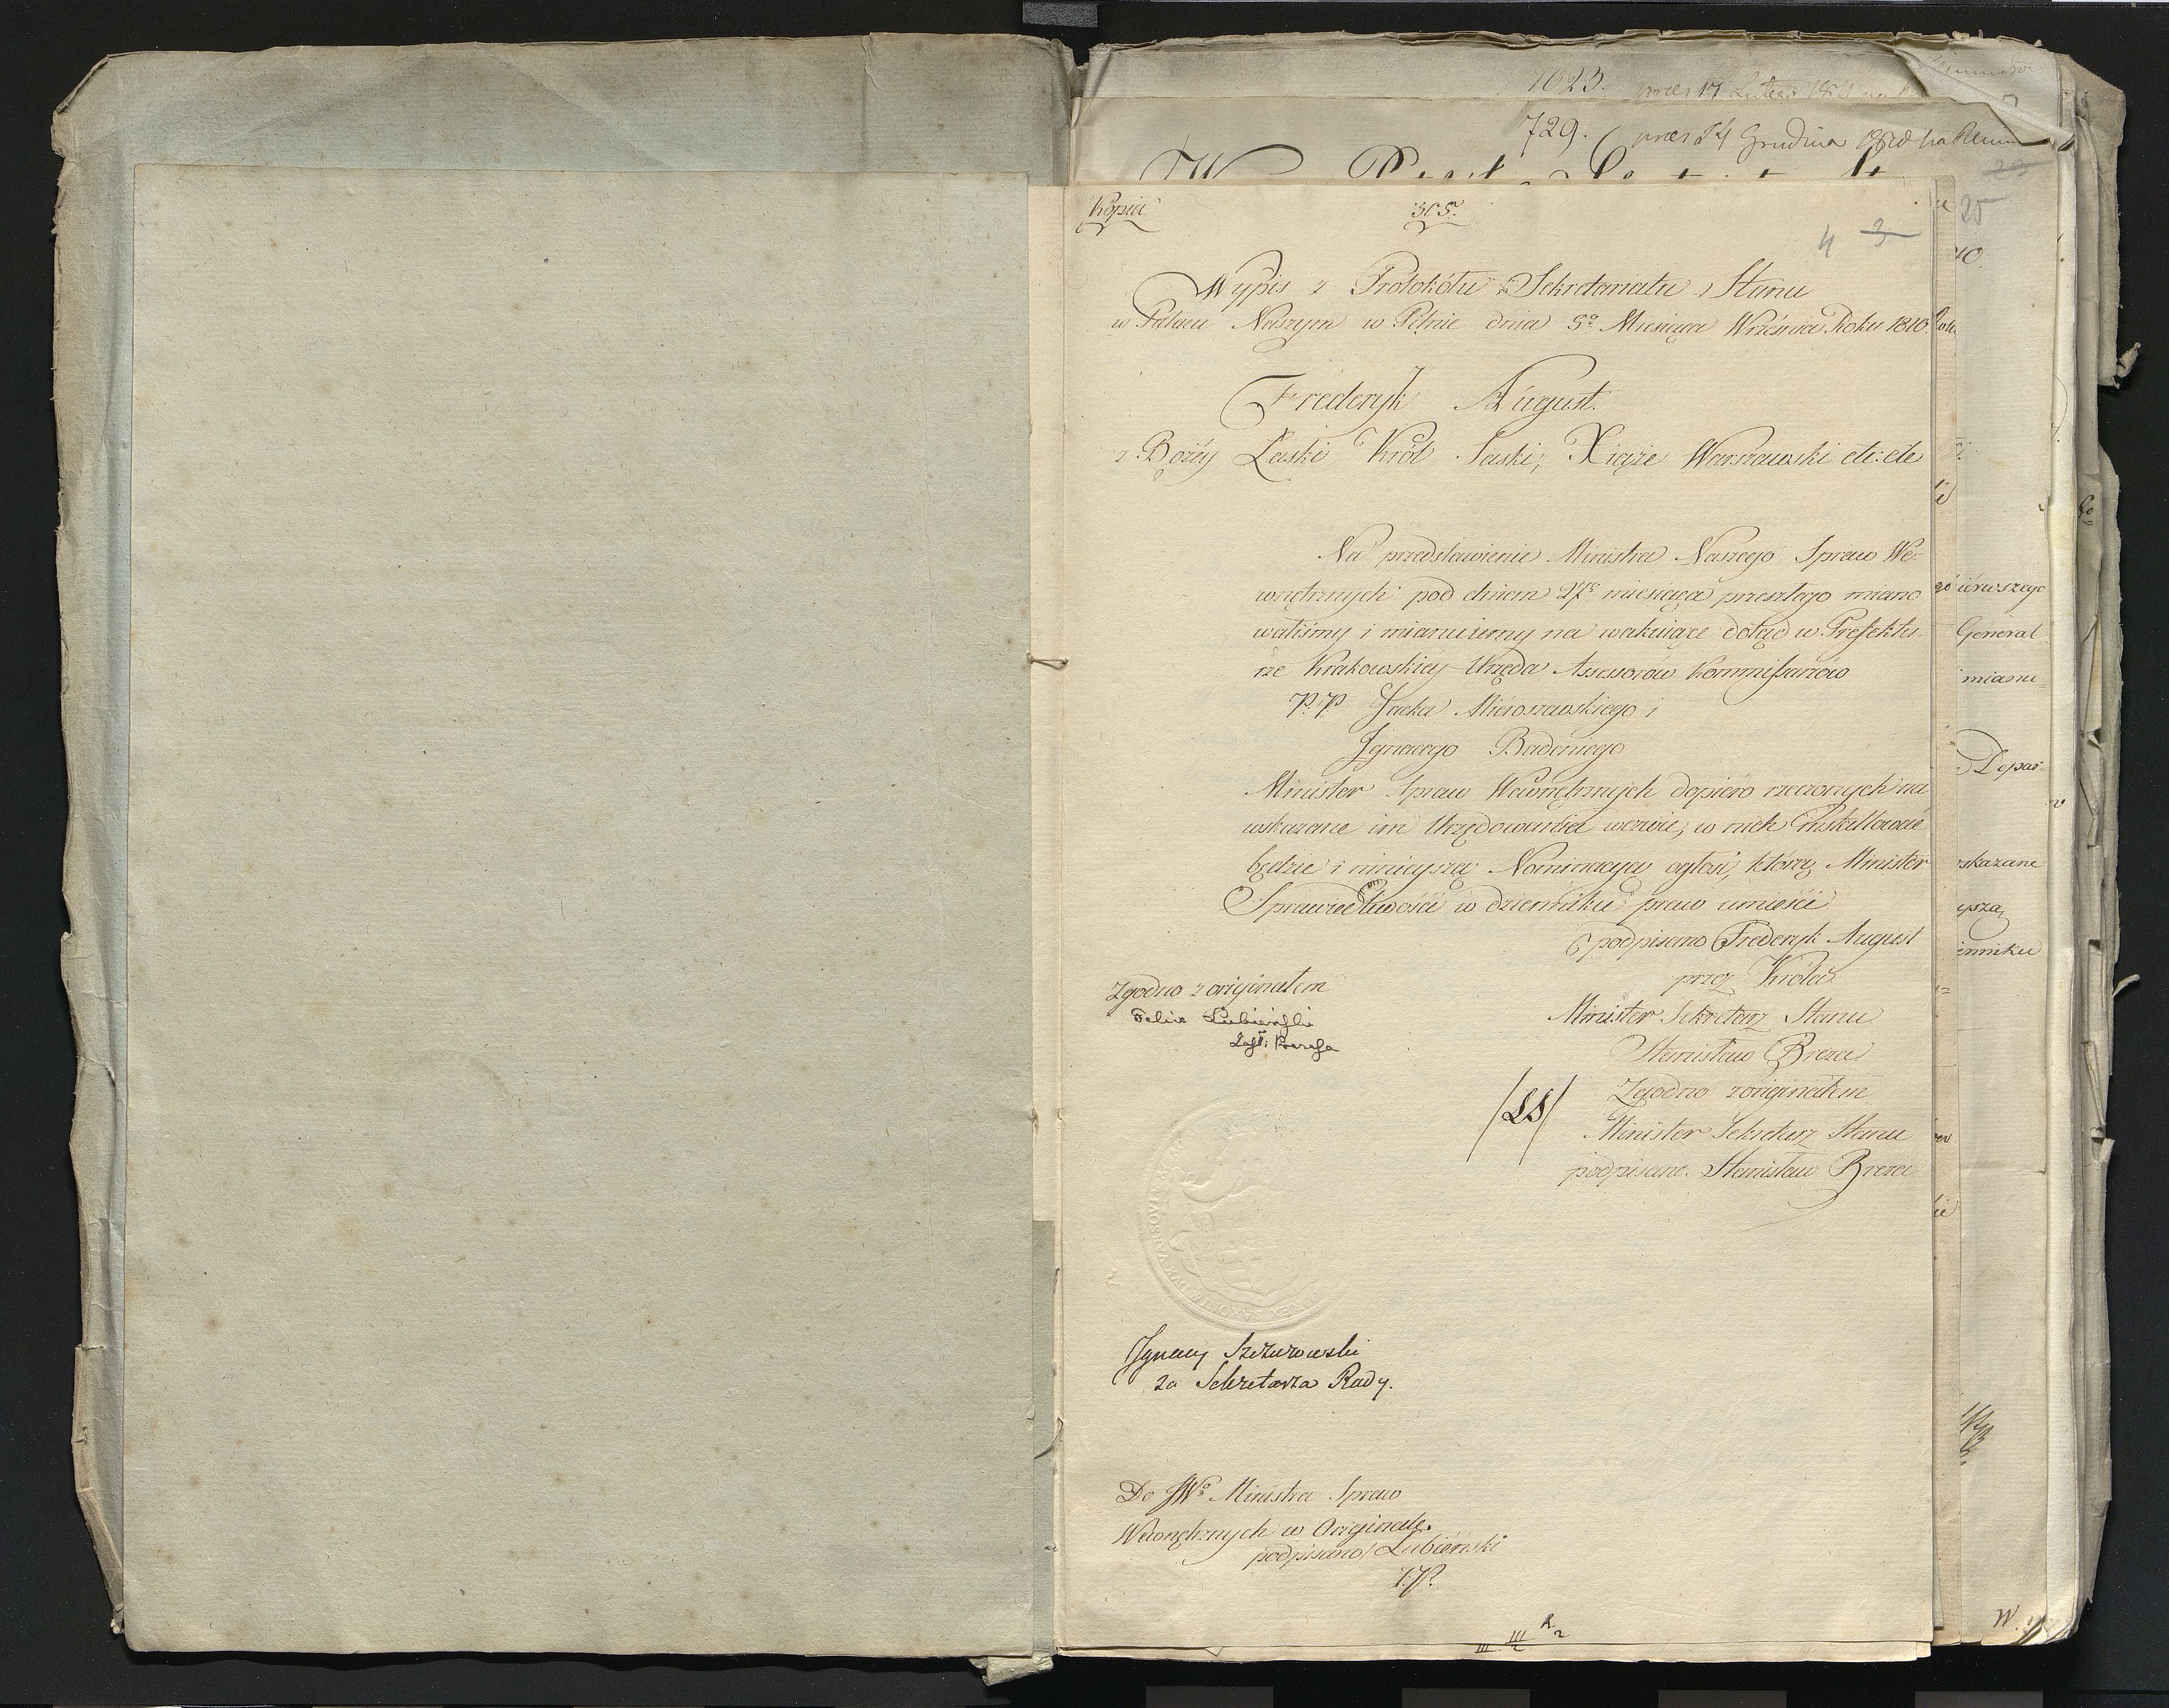 1023.
729. præs 24 Grudnia
25
Kopia 305.
4 3
Wypis z Protokółu Sekretariatu Stanu
w Pałacu Naszym w Pilnic dnia 5º Miesiąca Września Roku 1810.
Frederyk August.
z Bożéy Łaski Król Saski, Xiąże Warszawski etc: etc
Na przedstawienie Ministra Naszego Spraw We-
wnętrznych pod dniem 27º miesiąca przeszłego miano
waliśmy i mianuiemy na wakuiące dotąd w Prefektu-
rze Krakowskiey Urzęda Assessorów Kommissarzów
P.P. Jacka Mieroszewskiego i
Ignacego Badeniego
Minister Spraw Wewnętrznych dopiéro rzeczonych na
wskazane im Urzędowania wezwie, w nich installować
będzie i ninieyszą Nominacyą ogłosi, którą Minister
Sprawiedliwości w dzienniku praw umieści
podpisano Frederyk August
przez Króla
Minister Sekretarz Stanu
Stanisław Breza
Zgodno z originałem
Minister Sekretarz Stanu
podpisano. Stanisław Breza
/LS/
Zgodno z originałem
Felix Lubieński
Zast: Prezesa
Ignacy Szczurowski
za Sekretarza Rady.
Do JWº Ministra Spraw
Wewnętrznych w Originale.
podpisano/ Lubieński
Z.P.
iérwszego
Generał
mianu
Depar-
skazane
yszą
ienniku
W.